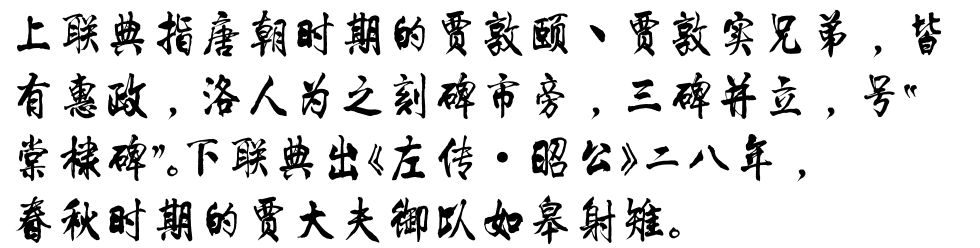 上联典指唐朝时期的贾敦颐、贾敦实兄弟，皆
有惠政，洛人为之刻碑市旁，三碑并立，号“
棠棣碑”。下联典出《左传·昭公》二八年，
春秋时期的贾大夫御以如皋射雉。